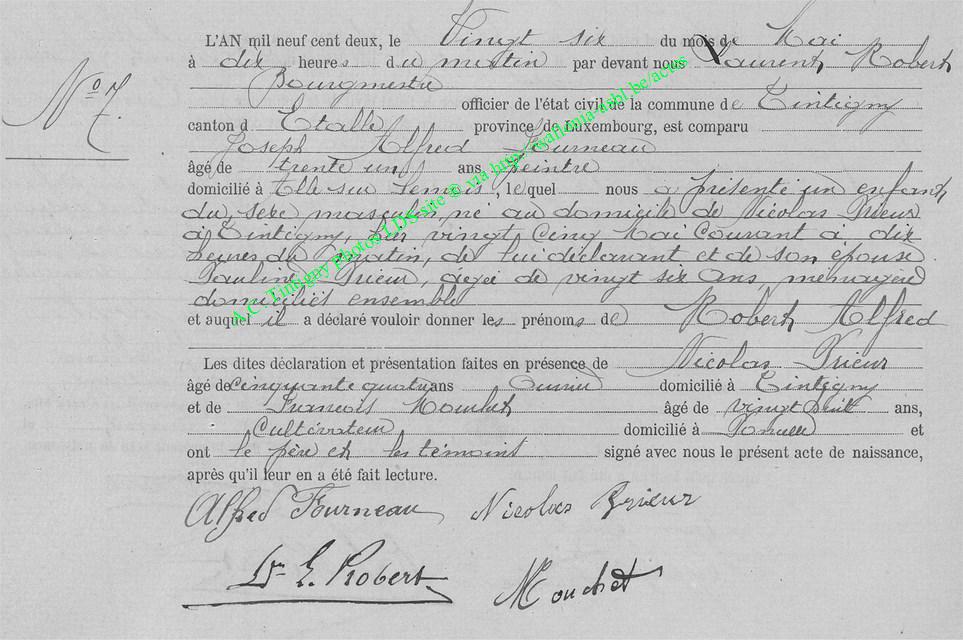 L'AN mil neuf cent deux, le Vingt six du mois de Mai
à dix heures du matin par devant nous Laurent Robert
Bourgmestre
officier de l'état civil de la commune de Tintigny
N° 7.
canton d Etalle province de Luxembourg, est comparu
Joseph Alfred Fourneau
âgé de trente un ans peintre
domicilié à sur Semois, lequel nous a présenté un enfant
du sexe masculin, né au domicile de Nicolas Prieur
à Tintigny, vingt cinq Mai Courant à dix
heures du matin, de lui déclarant et de son épouse
Pauline Prieur, agée de vingt six ans, ménagère
domiciliés ensemble
et auquel il a déclaré vouloir donner les prénoms de Robert Alfred
Les dites déclaration et présentation faites en présence de Nicolas Prieur
âgé de cinquante quatre ans ouvrier domicilié à Tintigny
et de François Mouchet âgé de vingt huit ans,
Cultivateur domicilié à et
ont le père et les témoins signé avec nous le présent acte de naissance,
après qu'il leur en a été fait lecture.
Alfred Fourneau Nicolas Prieur
Dr E. Robert Mouchet
A.C. Tintigny Photos LDS site © via http://wallonia-asbl.be/actes